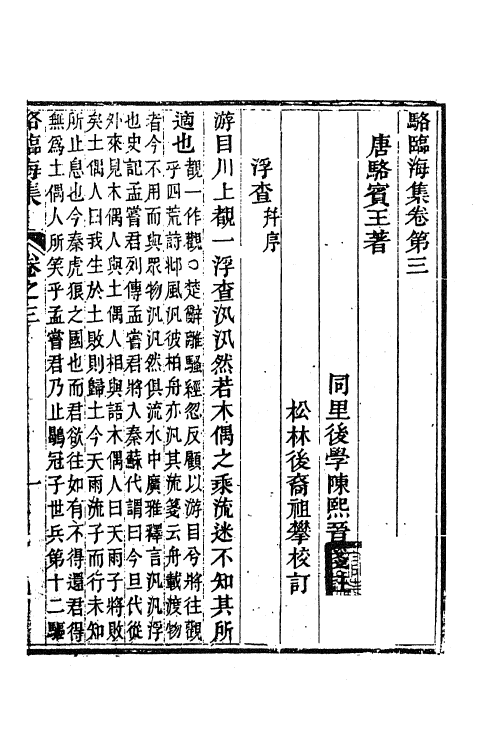 駱臨海集卷第三
唐駱賓王著
同里後學陳熙晉箋註
松林後裔祖攀校訂
浮查并序
游目川上覩一浮查汎汎然若木偶之乘流迷不知其所
適也覩一作觀○楚辭離騷經忽反顧以游目兮將往觀
乎四荒詩邶風汎彼柏舟亦汎其流箋云舟載渡物
者今不用而與眾物汎汎然俱流水中廣雅釋言汎汎浮
也史記孟嘗君列傳孟嘗君將入秦蘇代謂曰今旦代從
外來見木偶人與土偶人相與語木偶人曰天雨子將敗
矣土偶人曰我生於土敗則歸土今天雨流子而行未知
所止息也今秦虎狼之國也而君欲往如有不得還君得
無為土偶人所笑乎孟嘗君乃止鶡冠子世兵第十二驅
駱臨海集 卷之三 一